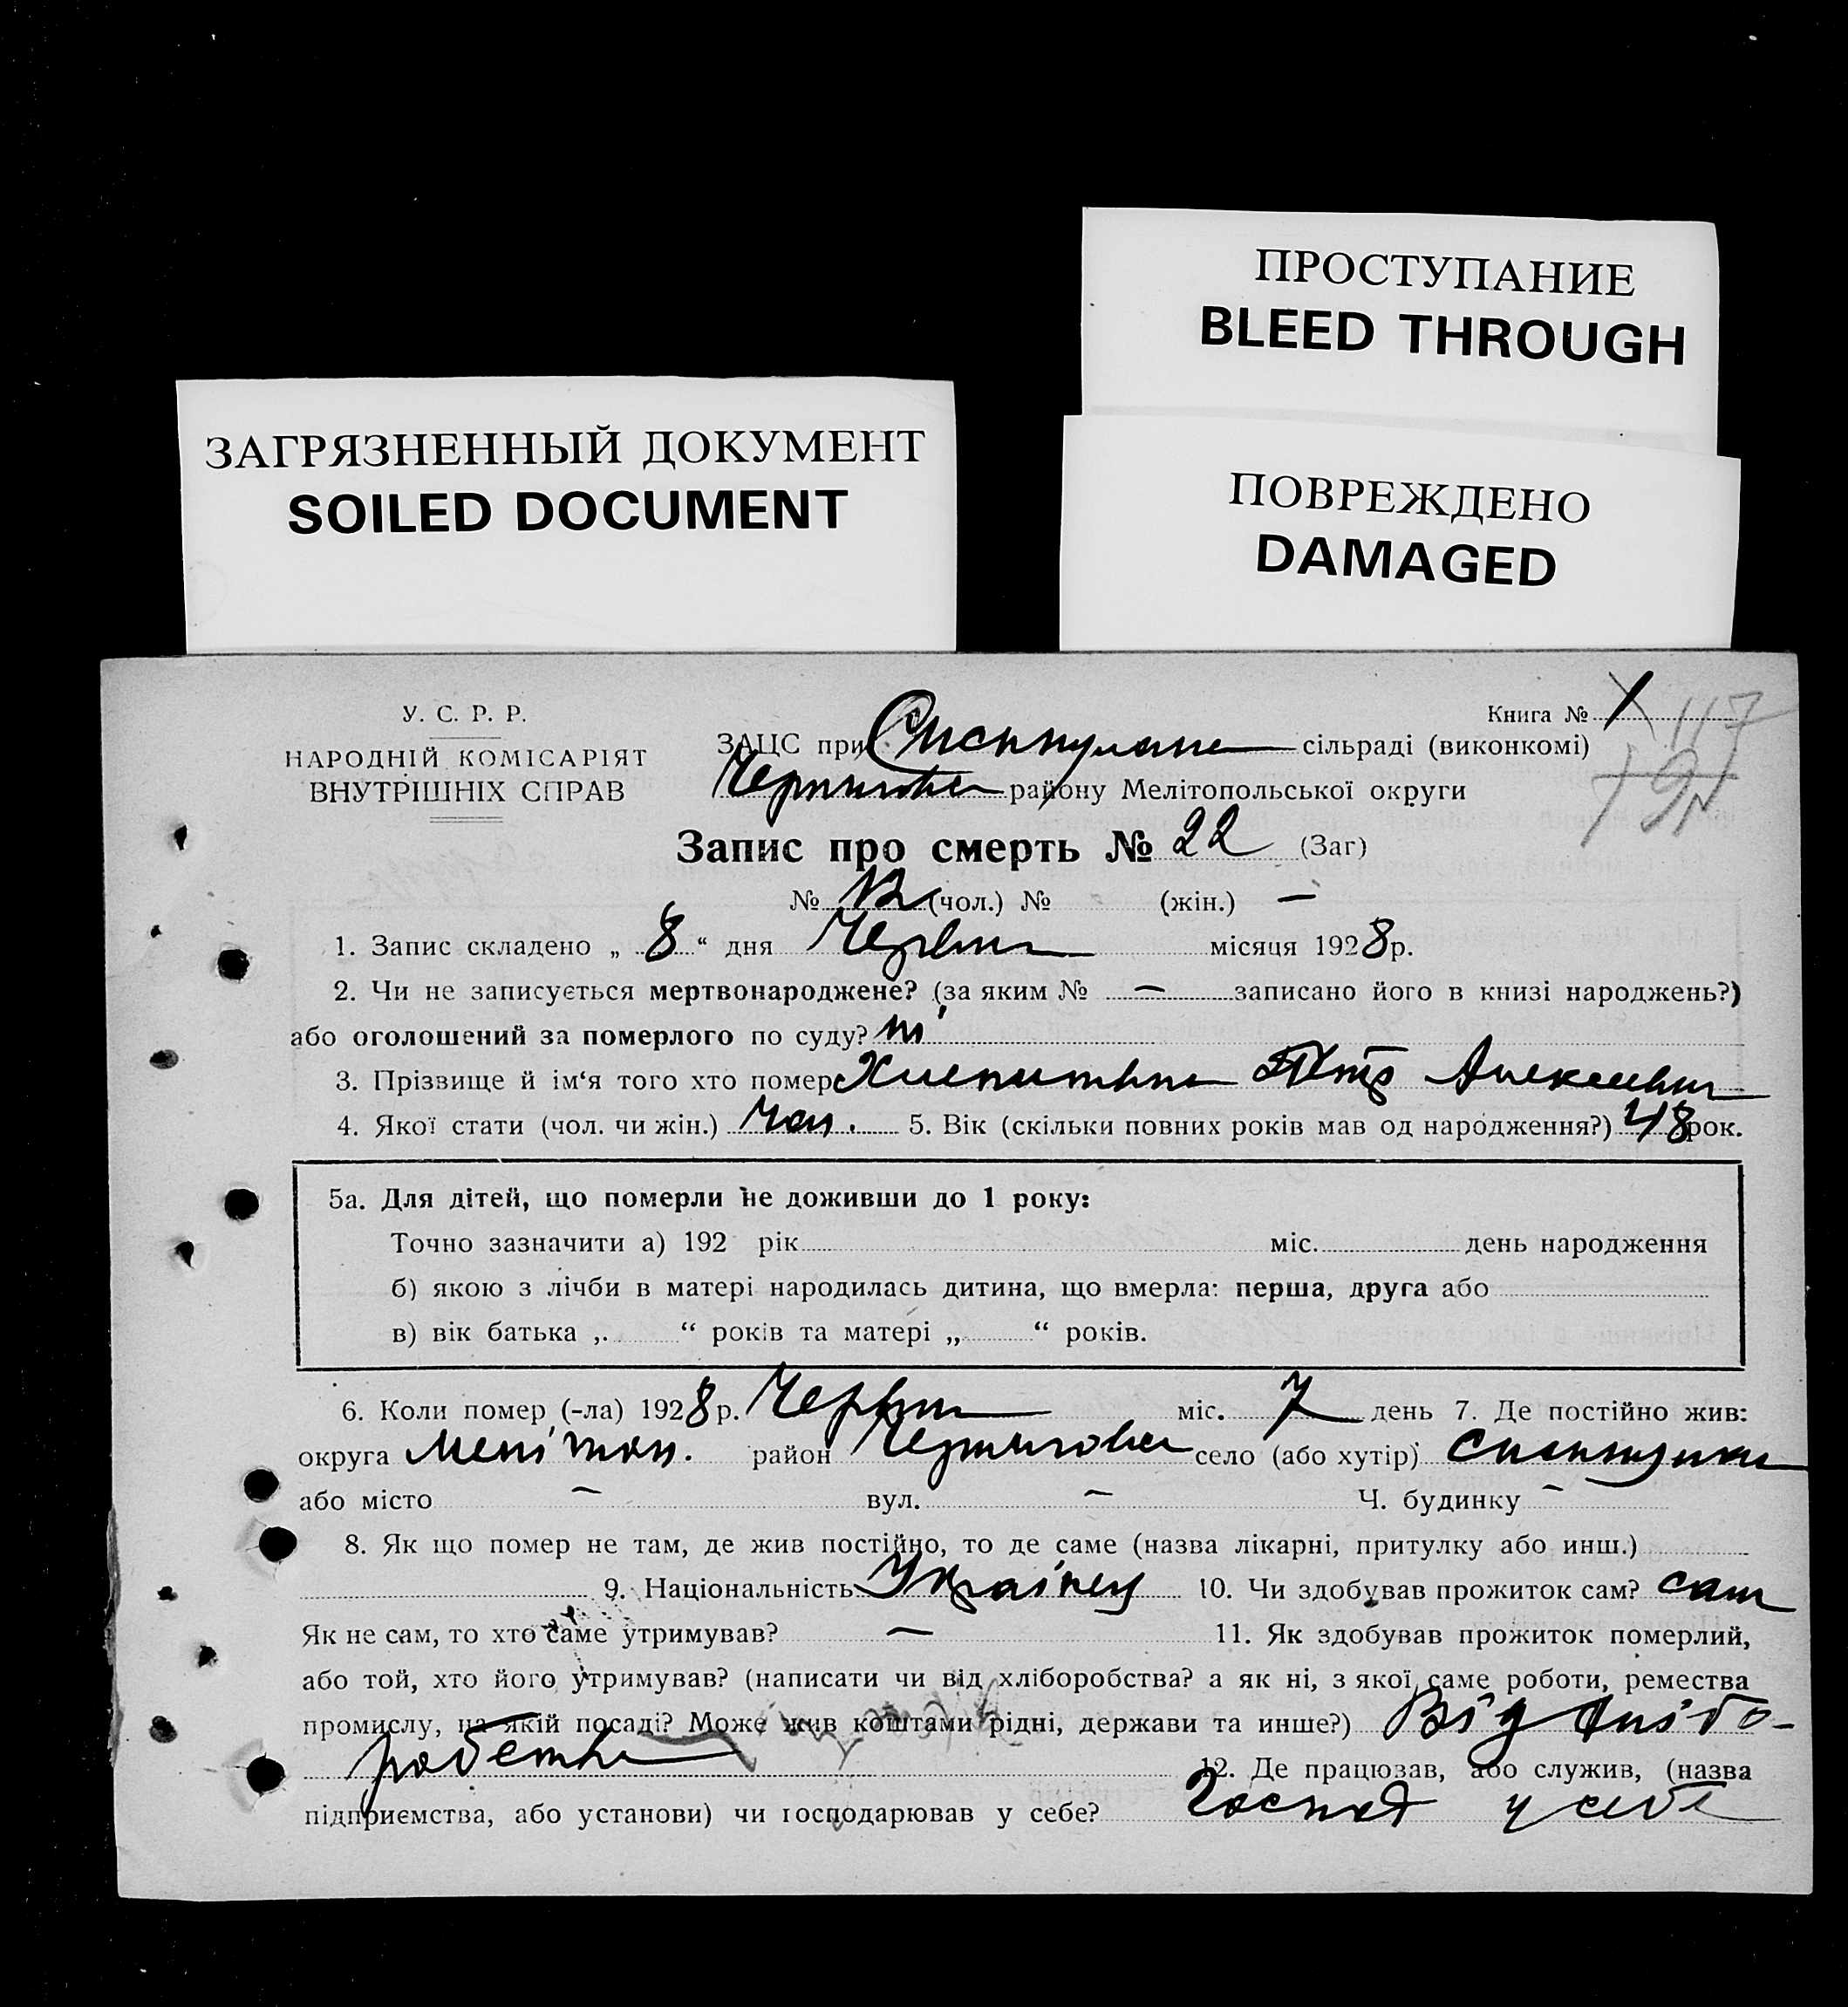 ПРОСТУПАНИЕ
BLEED THROUGH
ЗАГРЯЗНЕННЫЙ ДОКУМЕНТ
SOILED DOCUMENT
ПОВРЕЖДЕНО
DAMAGED
У. С. Р. Р.
НАРОДНІЙ КОМІСАРІЯТ
ВНУТРІШНІХ СПРАВ
Книга № 1
117
ЗАЦС при сільраді (виконкомі)
району Мелітопольської округи
Запис про смерть № 22 (Заг)
№ 12 (чол.) № (жін.) —
1. Запис складено „ 8 “ дня Червня місяця 1928 р.
2. Чи не записується мертвонароджене? (за яким № — записано його в книзі народжень?)
або оголошений за померлого по суду? ні
3. Прізвище й ім‘я того хто помер Петр Алексеевич
4. Якої стати (чол. чи жін.) Чол. 5. Вік (скільки повних років мав од народження?) 48 рок.
5а. Для дітей, що померли не доживши до 1 року:
Точно зазначити а) 192 рік міс. день народження
б) якою з лічби в матері народилась дитина, що вмерла: перша, друга або
в) вік батька „ “ років та матері „ “ років.
6. Коли помер (-ла) 1928 р. Червня міс. 7 день 7. Де постійно жив:
округа Мелітоп. район село (або хутір)
або місто — вул. — Ч. будинку —
8. Як що помер не там, де жив постійно, то де саме (назва лікарні, притулку або инш.)
9. Національність Українец 10. Чи здобував прожиток сам? сам
Як не сам, то хто саме утримував? — 11. Як здобував прожиток померлий,
або той, хто його утримував? (написати чи від хліборобства? а як ні, з якої саме роботи, ремества
промислу, на якій посаді? Може жив коштами рідні, держави та инше?) Від хлібо-
робства 12. Де працював, або служив, (назва
підприємства, або установи) чи господарював у себе? Господ у себе